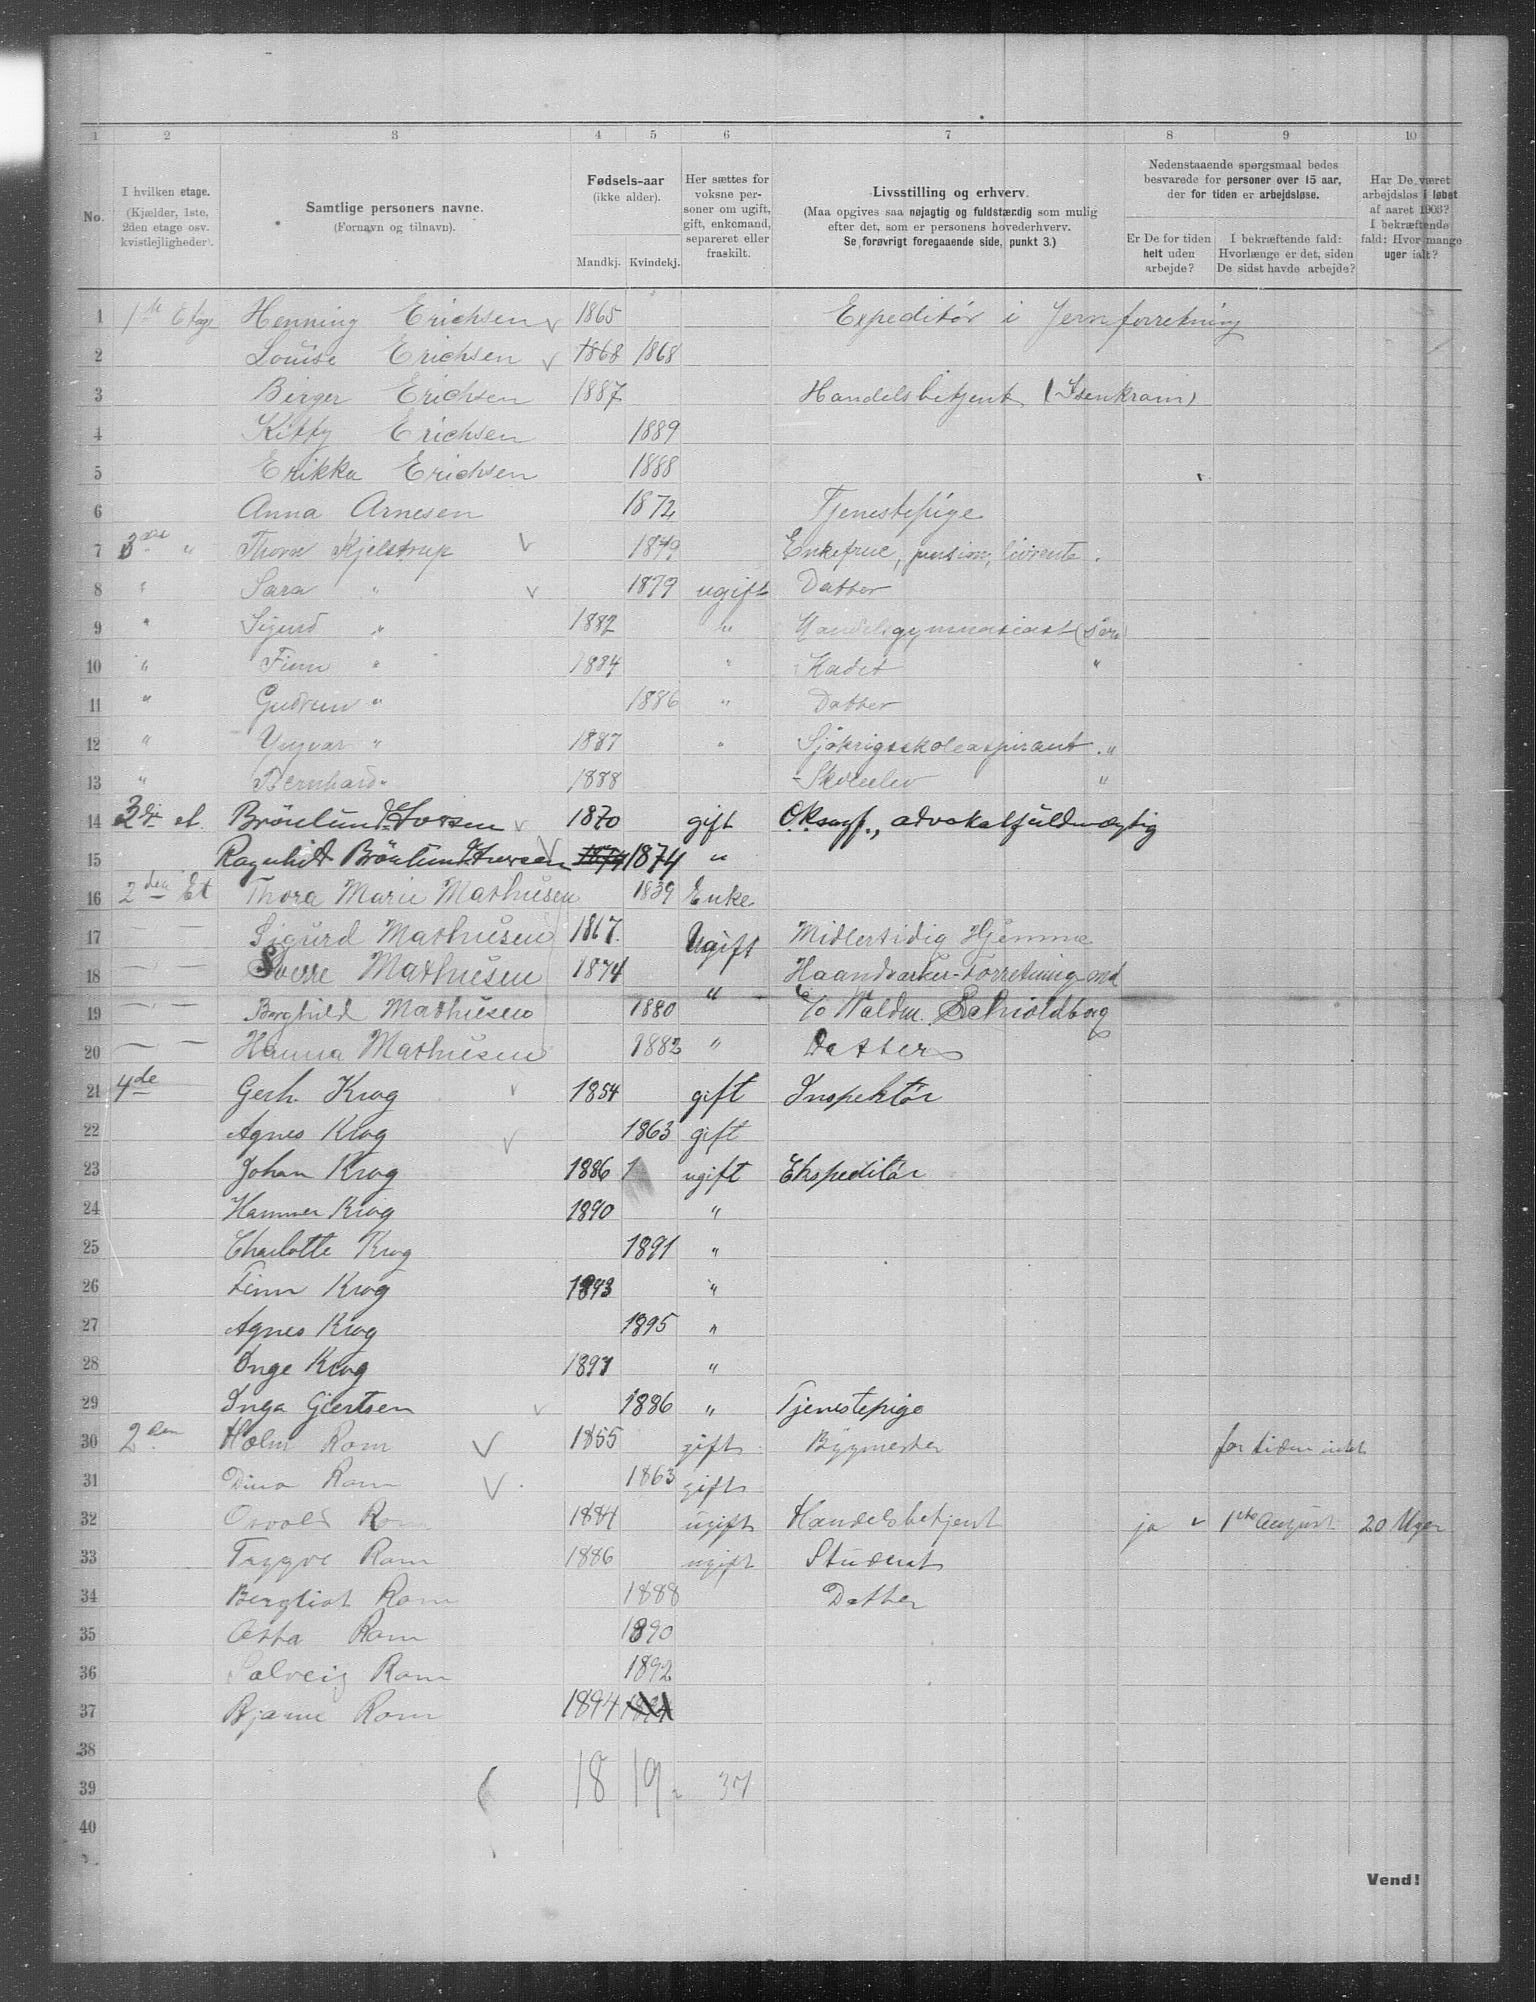 1 2 3 4 5 6 7 8 9 10
No.
I hvilken etage. (Kjælder, 1ste, 2den etage osv. kvistlejligheder).
Samtlige personers navne. (Fornavn og tilnavn).
Fødsels-aar (ikke alder).
Mandkj. Kvindekj.
Her sættes for voksne personer om ugift, gift, enkemand, separeret eller fraskilt.
Livsstilling og erhverv. (Maa opgives saa nøjagtig og fuldstændig som mulig efter det, som er personens hovederhverv. Se forøvrigt foregaaende side, punkt 3.)
Nedenstaaende spørgsmaal bedes besvarede for personer over 15 aar, der for tiden er arbejdsløse.
Er De for tiden helt uden arbejde?
I bekræftende fald: Hvorlænge er det, siden De sidst havde arbejde?
Har De været arbejdsløs i løbet af aaret 1903? I bekræftende fald: Hvor mange uger ialt?
1 1ste Etage Henning Erichsen 1865 Expeditör i Jernforretning
2 Louise Erichsen 1868 1868
3 Birger Erichsen 1887 Handelsbetjent (Isenkram)
4 Kitty Erichsen 1889
5 Erikka Erichsen 1888
6 Anna Arnesen 1872 Tjenestepige
7 3die " Thora Kjelstrup 1849 Enkefrue, pension, livrente.
8 " Sara " 1879 ugift Datter
9 " Sigurd " 1882 " Handelsgymnasiast (Søn)
10 " Finn " 1884 " Kadet "
11 " Gudrun " 1886 " Datter
12 " Yngvar " 1887 " Sjøkrigsskoleaspirant "
13 " Bernhard " 1888 Skoleelev "
14 3die et. 1870 gift O.R.sagf., advokatfuldmægtig
15 Ragnhild 1874 1874 "
16 2den Et Thora Marie Mathiesen 1839 Enke
17 — — Sigurd Mathiesen 1867 Ugift Midlertidig Hjemme
18 — — Sverre Mathiesen 1874 " Haandværker-Forretning med
19 — — Borghild Mathiesen 1880 c/o Waldm. Schioldborg
20 — — Hanna Mathiesen 1882 " Datter
21 4de Gerh. Krog 1854 gift Inspektör
22 Agnes Krog 1863 gift
23 Johan Krog 1886 1 ugift Ekspeditör
24 Hammer Krog 1890 "
25 Charlotte Krog 1891 "
26 Finn Krog 1893 "
27 Agnes Krog 1895 "
28 Inge Krog 1897 "
29 Inga Gjertsen 1886 " Tjenestepige
30 2den Holm Rom 1855 gift Bygmester for tiden intet
31 Dina Rom 1863 gift
32 Osvald Rom 1884 ugift Handelsbetjent ja 1ste August 20 Uger
33 Trygve Rom 1886 ugift Student
34 Bergliot Rom 1888 Datter
35 Asta Rom 1890
36 Solveig Rom 1892
37 Bjarne Rom 1894 1894
38
39 18 19 = 37
40
Vend!